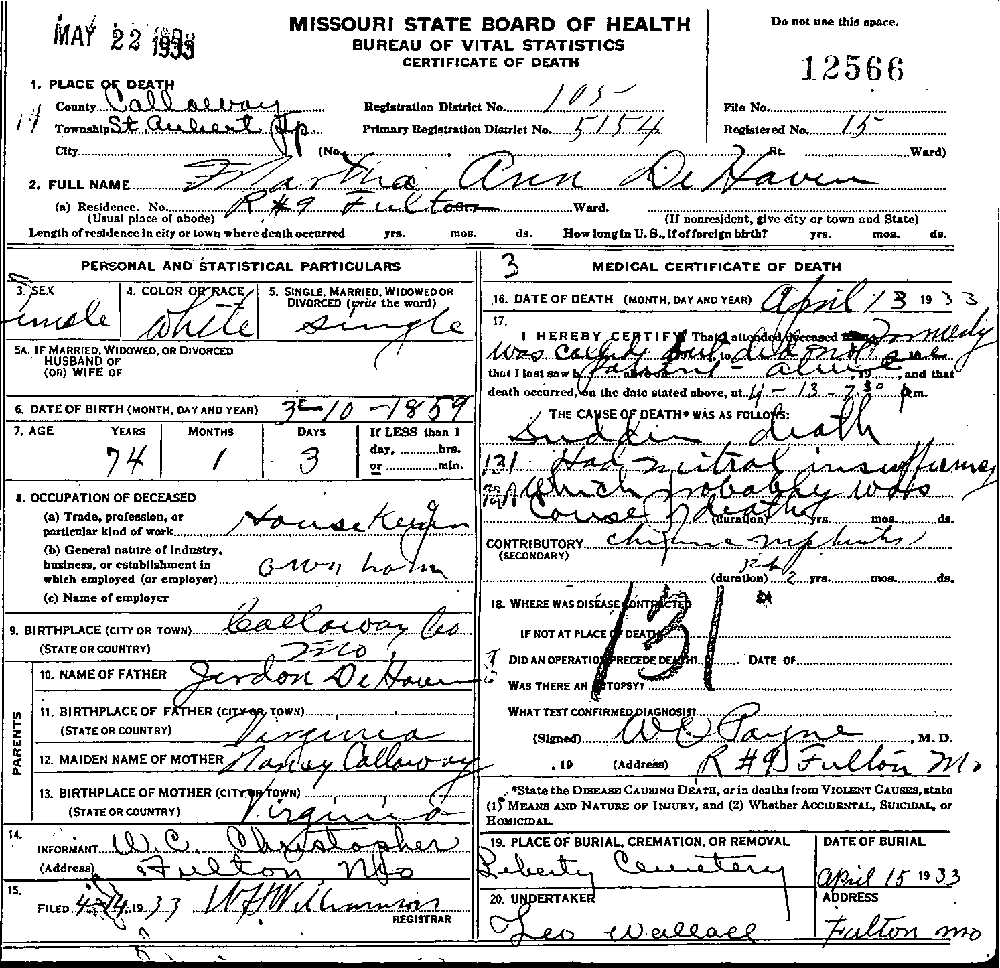 MAY 22 1933
MISSOURI STATE BOARD OF HEALTH
BUREAU OF VITAL STATISTICS
CERTIFICATE OF DEATH
Do not use this space.
12566
1. PLACE OF DEATH
County Callaway
Registration District No. 105
File No.
Township St. Aubert Tp.
Primary Registration District No. 5154
Registered No. 15
City (No. St. Ward)
2. FULL NAME Martha Ann DeHaven
(a) Residence. No. R#9 Fulton Ward.
(Usual place of abode) (If nonresident, give city or town and State)
Length of residence in city or town where death occurred yrs. mos. ds. How long in U. S., if of foreign birth? yrs. mos. ds.
PERSONAL AND STATISTICAL PARTICULARS
3. SEX 4. COLOR OR RACE 5. SINGLE, MARRIED, WIDOWED OR DIVORCED (write the word)
Female White Single
5A. IF MARRIED, WIDOWED, OR DIVORCED
HUSBAND OF
(OR) WIFE OF
6. DATE OF BIRTH (MONTH, DAY AND YEAR) 3-10-1859
7. AGE YEARS MONTHS DAYS If LESS than 1 day, hrs. or min.
74 1 3
8. OCCUPATION OF DECEASED
(a) Trade, profession, or
particular kind of work Housekeeper
(b) General nature of industry,
business, or establishment in
which employed (or employer) own home
(c) Name of employer
9. BIRTHPLACE (CITY OR TOWN) Callaway Co
(STATE OR COUNTRY) Mo
PARENTS
10. NAME OF FATHER Jerdon DeHaven
11. BIRTHPLACE OF FATHER (CITY OR TOWN)
(STATE OR COUNTRY) Virginia
12. MAIDEN NAME OF MOTHER Nancy Callaway
13. BIRTHPLACE OF MOTHER (CITY OR TOWN)
(STATE OR COUNTRY) Virginia
14.
INFORMANT W.C. Christopher
(Address) Fulton Mo
15.
FILED 4-14, 1933
REGISTRAR
3
MEDICAL CERTIFICATE OF DEATH
16. DATE OF DEATH (MONTH, DAY AND YEAR) April 13 1933
17.
I HEREBY CERTIFY, That I attended deceased from
was called but did not see
that I last saw h alive on , 19 , and that
patient alive
death occurred, on the date stated above, at 4-13-7:30 p.m.
THE CAUSE OF DEATH* WAS AS FOLLOWS:
Sudden death
131 Had mitral insufficiency
which probably was
cause of death (duration) yrs. mos. ds.
CONTRIBUTORY chronic nephritis
(SECONDARY)
(duration) 2 yrs. mos. ds.
131
18. WHERE WAS DISEASE CONTRACTED
IF NOT AT PLACE OF DEATH?
DID AN OPERATION PRECEDE DEATH? DATE OF
WAS THERE AN AUTOPSY?
WHAT TEST CONFIRMED DIAGNOSIS?
(Signed) W C Payne, M. D.
, 19 (Address) R#9 Fulton Mo
*State the DISEASE CAUSING DEATH, or in deaths from VIOLENT CAUSES, state
(1) MEANS AND NATURE OF INJURY, and (2) Whether ACCIDENTAL, SUICIDAL, or
HOMICIDAL.
19. PLACE OF BURIAL, CREMATION, OR REMOVAL DATE OF BURIAL
Liberty Cemetery April 15 1933
20. UNDERTAKER ADDRESS
Leo Wallace Fulton Mo